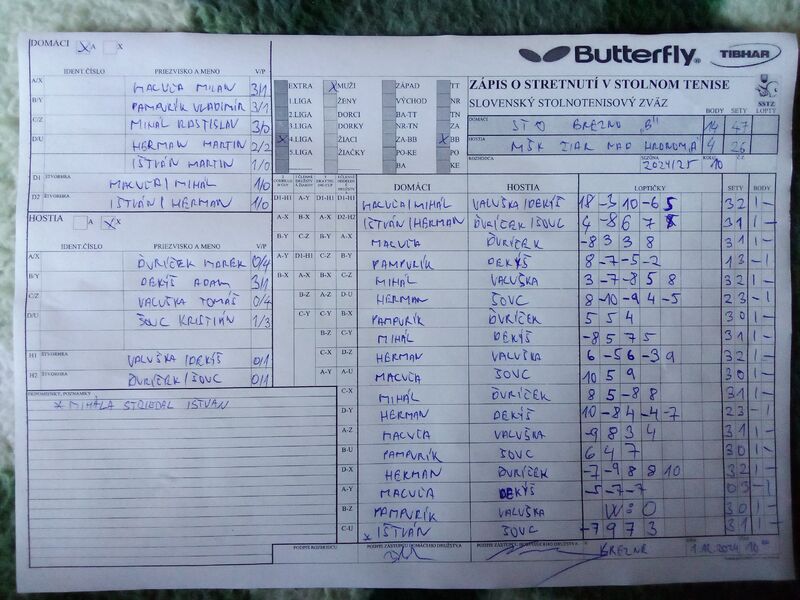 DOMÁCI X A X
Butterfly TIBHAR
IDENT.ČÍSLO PRIEZVISKO A MENO V/P
A/X MACUĽA MILAN 3/1
B/Y PAMPURÍK VLADIMÍR 3/1
C/Z MIHÁL RASTISLAV 3/0
D/U HERMAN MARTIN 2/2
IŠTVÁN MARTIN 1/0
D1 ŠTVORHRA MACUĽA/MIHÁL 1/0
D2 ŠTVORHRA IŠTVÁN/HERMAN 1/0
HOSTIA A X
IDENT.ČÍSLO PRIEZVISKO A MENO V/P
A/X ĎURÍČEK MAREK 0/4
B/Y DEKÝŠ ADAM 3/1
C/Z VALUŠKA TOMÁŠ 0/4
D/U ŠOUC KRISTIÁN 1/3
H1 ŠTVORHRA VALUŠKA/DEKÝŠ 0/1
H2 ŠTVORHRA ĎURÍČEK/ŠOUC 0/1
PRIPOMIENKY, POZNÁMKY
* MIHÁLA STRIEDAL IŠTVÁN
EXTRA X MUŽI ZÁPAD TT
1.LIGA ŽENY VÝCHOD NR
2.LIGA DORCI BA-TT TN
3.LIGA DORKY NR-TN ZA
X 4.LIGA ŽIACI ZA-BB X BB
5.LIGA ŽIAČKY PO-KE PO
BA KE
ZÁPIS O STRETNUTÍ V STOLNOM TENISE
SLOVENSKÝ STOLNOTENISOVÝ ZVÄZ SSTZ
BODY SETY LOPTY
DOMÁCI STO BREZNO "B" 14 47
HOSTIA MŠK ŽIAR NAD HRONOM A 4 26
ROZHODCA SEZÓNA 2024/25 KOLO 10 ČZ
DOMÁCI HOSTIA LOPTIČKY SETY BODY
D1-H1 A-Y D1-H1 D1-H1 MACUĽA/MIHÁL VALUŠKA/DEKÝŠ 18 -3 10 -6 5 3 2 1 -
A-X B-X A-X D2-H2 IŠTVÁN/HERMAN ĎURÍČEK/ŠOUC 4 -8 6 7 3 1 1 -
B-Y C-Z B-Y A-X MACUĽA ĎURÍČEK -8 3 3 8 3 1 1 -
A-Y D1-H1 C-Z B-Y PAMPURÍK DEKÝŠ 8 -7 -5 -2 1 3 - 1
B-X A-X A-Y C-Z MIHÁL VALUŠKA 3 -7 -8 5 8 3 2 1 -
B-Z A-Z D-U HERMAN ŠOUC 8 -10 -9 4 -5 2 3 - 1
C-Y Y-C B-X PAMPURÍK ĎURÍČEK 5 5 4 3 0 1 -
B-Z C-Y MIHÁL DEKÝŠ -8 5 7 5 3 1 1 -
C-X D-Z HERMAN VALUŠKA 6 -5 6 -3 9 3 2 1 -
A-Y A-U MACUĽA ŠOUC 10 5 9 3 0 1 -
C-X MIHÁL ĎURÍČEK 8 5 -8 8 3 1 1 -
D-Y HERMAN DEKÝŠ 10 -8 4 -4 -7 2 3 - 1
A-Z MACUĽA VALUŠKA -9 8 3 4 3 1 1 -
B-U PAMPURÍK ŠOUC 6 4 7 3 0 1 -
D-X HERMAN ĎURÍČEK -7 -9 8 8 10 3 2 1 -
A-Y MACUĽA DEKÝŠ -5 -7 -7 0 3 - 1
B-Z PAMPURÍK VALUŠKA W:O 3 0 1 -
C-U * IŠTVÁN ŠOUC -7 9 7 3 3 1 1 -
PODPIS ROZHODCU PODPIS ZÁSTUPCU DOMÁCEHO DRUŽSTVA PODPIS ZÁSTUPCU HOSŤUJÚCEHO DRUŽSTVA BREZNE 1.12.2024 10